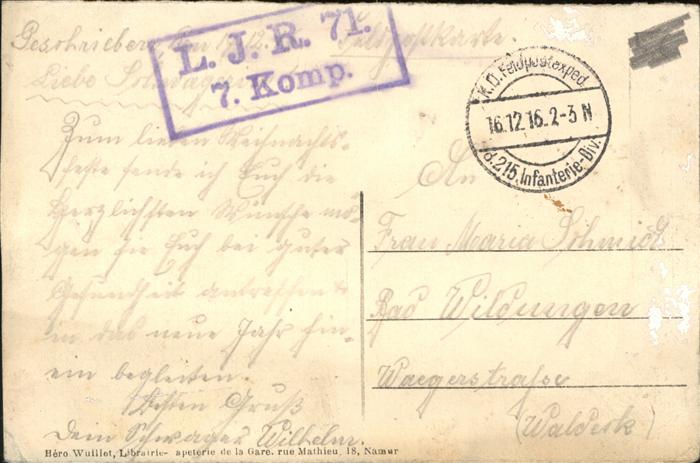 Geschrieben, den 17.12.
Feldpostkarte.
L. J. R. 71.
7. Komp.
K.D. Feldpostexped.
16.12.16. 2-3 N
d. 215. Infanterie-Div.
Liebe
Zum lieben Weihnachts-
feste sende ich Euch die
herzlichsten Wünsche mö-
gen sie Euch bei guter
Gesundheit antreffen &
in das neue Jahr hin-
ein begleiten.
Besten Gruß
Dein Schwager Wilhelm.
An
Frau Maria Schmidt
Bad Wildungen
Waegerstraße
(Waldeck)
Héro Wuillot, Librairie- apeterie de la Gare, rue Mathieu, 18, Namur